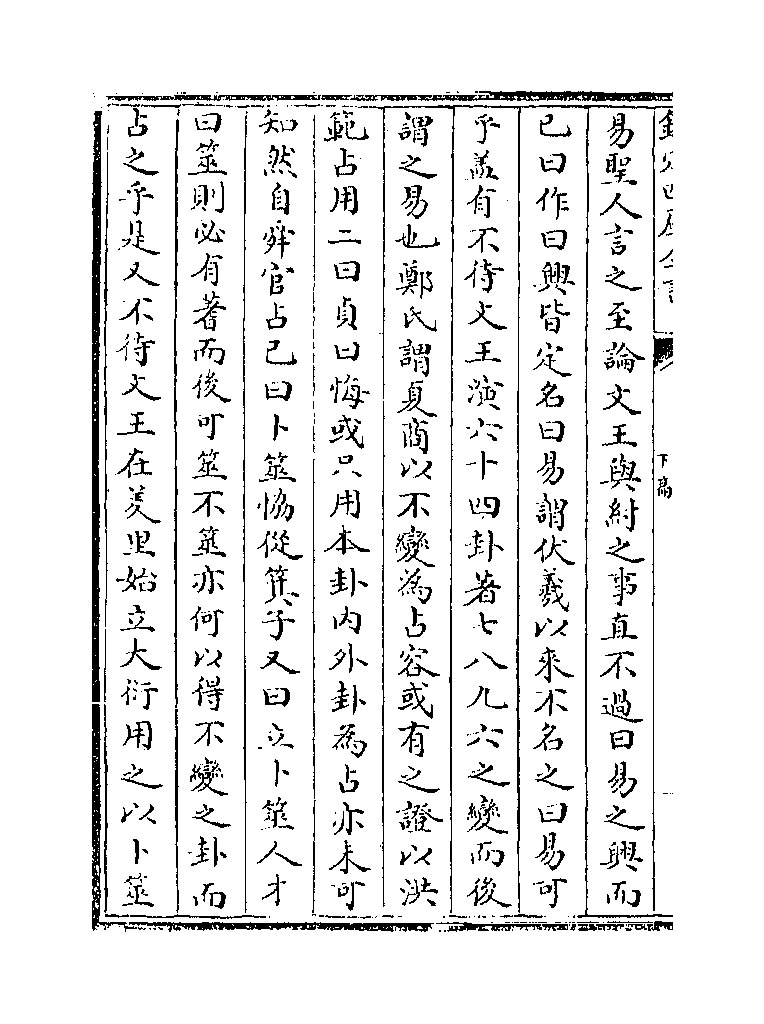 易聖人言之至論文王與紂之事直不過曰易之興而
已曰作曰興皆定名曰易謂伏羲以來不名之曰易可
乎蓋有不待文王演六十四卦著七八九六之變而後
謂之易也鄭氏謂夏商以不變為占容或有之證以洪
範占用二曰貞曰悔或只用本卦内外卦為占亦未可
知然自舜官占已曰卜筮恊從箕子又曰立卜筮人才
曰筮則必有蓍而後可筮不筮亦何以得不變之卦而
占之乎是又不待文王在羑里始立大衍用之以卜筮